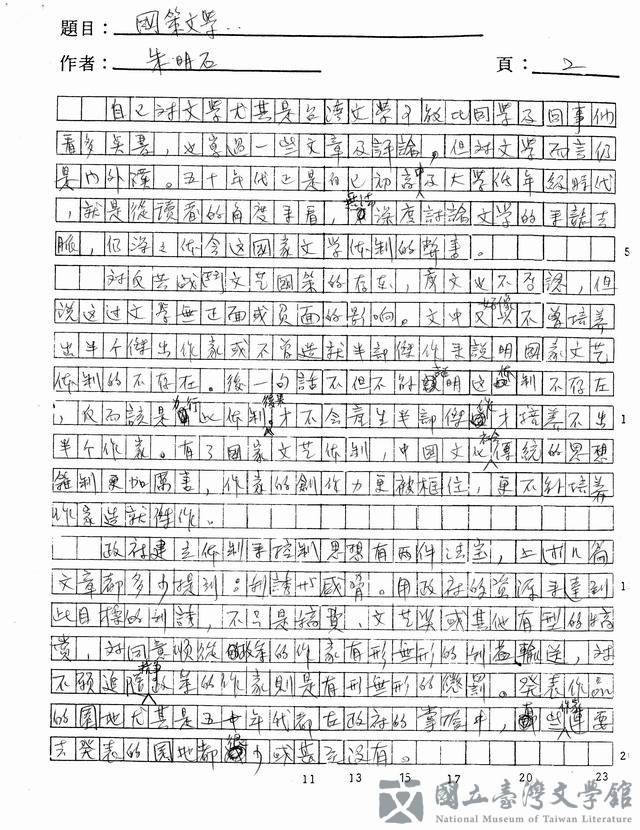 題目：國策文學..
作者：朱明石
頁：2
自己对文學尤其是台湾文學不敢比同學及同事們
看多吴書，也寫過一些文章及評論。但对文學而言仍
是門外漢。五十年代正是自己初高中及大學低年級時代
，就是從讀者的角度来看，無法深度討論文學的来龍去
脈，仍深之体会这國家文學体制的弊害。
对反共战鬥文艺國策的存在，處文也不否認，但
说这对文學無正面或負面的影响。文中又好像不曾培养
出半个傑出作家或不曾造就半部傑作来説明國家文艺
体制的不存在。後一句話不但不能說明这体制不存在
，反而該是為行此体制後果才不会產生半部傑作才培养不出
半个作家。有了國家文艺体制，中國文化社会傳統的思想
箝制更加厲害，作家的創作力更被框住，更不能培養
作家造就傑作。
政府建立体制来控制思想有兩件法宝，上述几篇
文章都多少提到：利誘或威脅。用政府的資源来達到
此目標的利誘，不只是稿費、文艺奖或其他有型的犒
赏，对同意順從政策的作家有形無形的利益輸送，对
不願追隨其事政策的作家則是有形無形的懲罰。發表作品
的園地尤其是五十年代都在政府的掌控中，有些作家連要
去發表的園地都缺少或甚至没有。
5
1
1
2
11 13 15 17 20 23
國立臺灣文學館
National Museum of Taiwan Literature